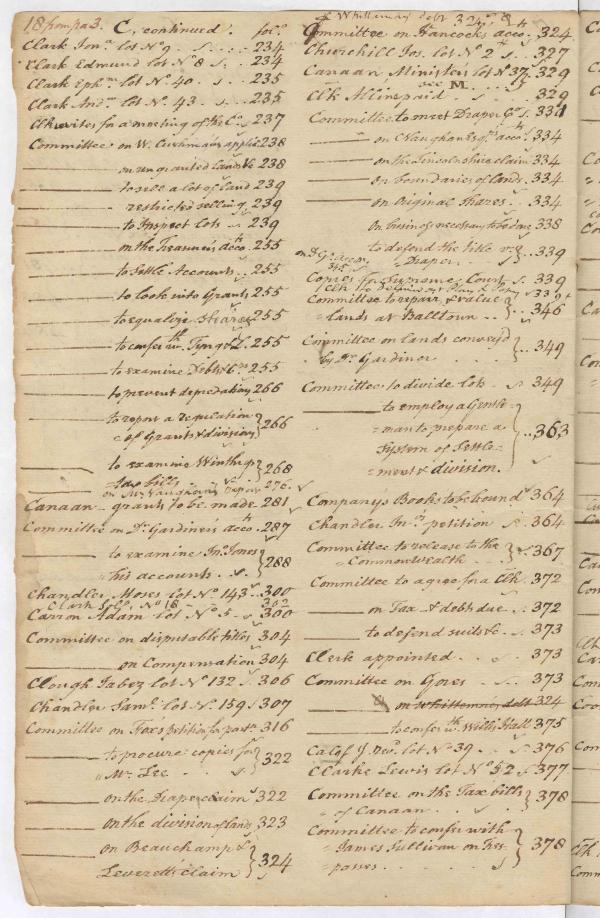 18 from pa 3. C, continued. fol.o
Clark Jon.a lot No 9 234
Clark Edmund lot No 8 234
Clark Eph.m lot No 40 235
Clark And.w lot No. 43 235
Clk writes for a meeting of the Co. 237
Committee on W. Cushman's applic 238
on ungranted lands &c 238
to sell a lot of land 239
restricted selling 239
to Inspect lots 239
on the Treasurer's acco.ts 255
to settle Accounts 255
to look into Grants 255
to equalize Shares 255
to confer wth Tyng &c. 255
to examine Debts &c 255
to prevent depredation 266
to report a regulation
of Grants & division 266
to examine Winthrop
tax bills 268
on Mr. Vaughan's Report 276.
Canaan grants to be made 281
Committee on Dr. Gardiner's acco.ts 287
to examine Jn.o Jones
his accounts 288
Chandler Moses lot No 143 300
Clark No 18 302
Carron Adam lot No 5 300
Committee on disputable titles 304
on Compensation 304
Clough Jabez lot No 132 306
Chandler Sam.l lot No. 159 307
Committee on Fox's petition for part.n 316
to procure copies for
Mr. Lee 322
on the Draper claim 322
on the division of lands 323
on Beauchamp &
Leverett's claim 324
Whittemore's debt 324
Committee on Hancocks acco.ts 324
Churchill Jos. lot No 2 327
Canaan Minister's lot No 37 329
see M.
Clk Allin paid 329
Committee to meet Draper &c 331
on C Vaughan Esqrs acc.ts 334
on the Lincolnshire claim 334
on boundaries of lands 334
on Original Shares 334
on business necessary to be done 338
to defend the title vs
Draper 339
on Dr Gs accots 345
Copies for Supreme Court 339
Committee to repair & value
lands at Balltown 346
Committee on lands convey'd
by Dr. Gardiner 349
Committee to divide lots 349
to employ a Gentle=
man to prepare a
System of Settle=
ment & division. 363
Companys Books to be bound 364
Chandler Jn.o petition 364
Committee to release to the
Commonwealth 367
Committee to agree for a Clk 372
on Tax & debt due 372
to defend suits &c 373
Clerk appointed 373
Committee on Gores 373
on Whittemore debt 324
to confer wth Willis Hall 375
Calef J. lot No 39 376
Clarke Lewis lot No 52 377
Committee on the Tax bills
of Canaan 378
Committee to confer with
James Sullivan on Tres=
passes 378